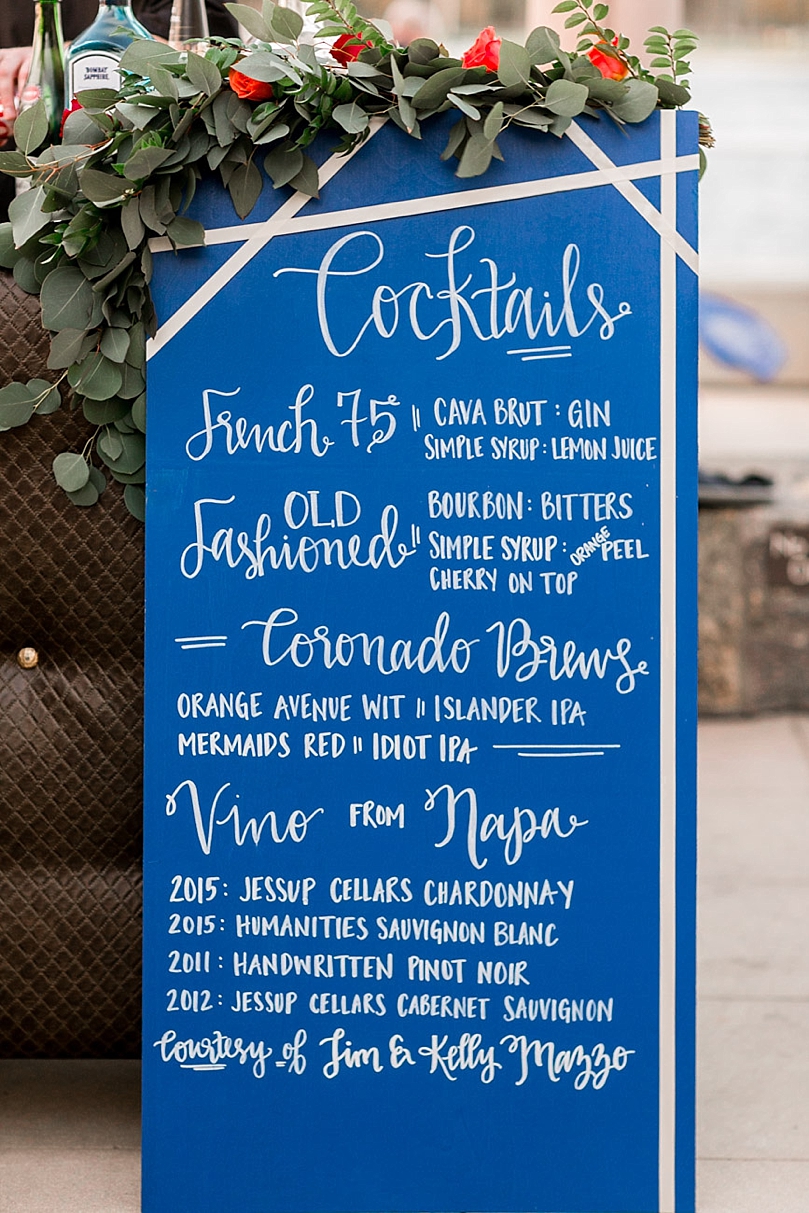 BOMBAY
SAPPHIRE
Cocktails
French 75 || CAVA BRUT : GIN
SIMPLE SYRUP : LEMON JUICE
OLD Fashioned || BOURBON : BITTERS
SIMPLE SYRUP : ORANGE PEEL
CHERRY ON TOP
Coronado Brews
ORANGE AVENUE WIT || ISLANDER IPA
MERMAIDS RED || IDIOT IPA
Vino FROM Napa
2015: JESSUP CELLARS CHARDONNAY
2015: HUMANITIES SAUVIGNON BLANC
2011: HANDWRITTEN PINOT NOIR
2012: JESSUP CELLARS CABERNET SAUVIGNON
Courtesy of Jim & Kelly Mazzo